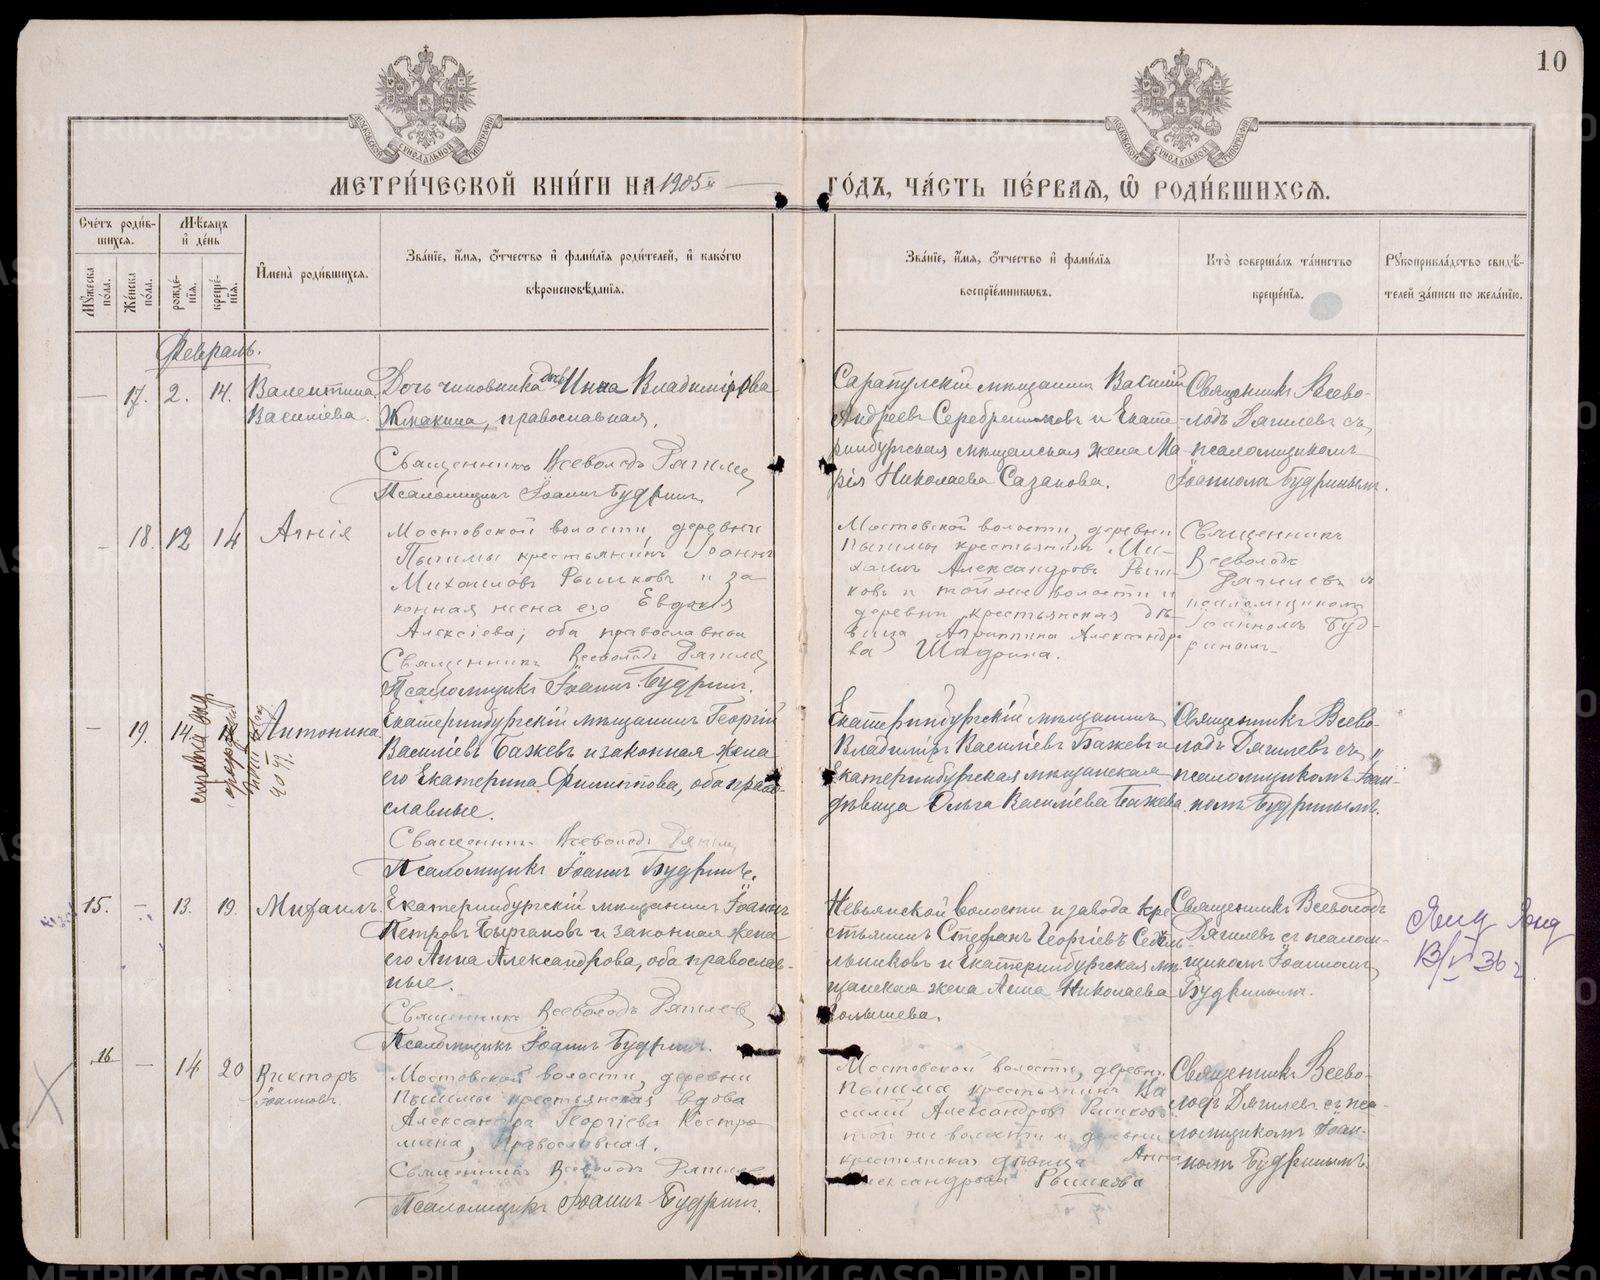 10
МОСКОВСКОЙ СѴНОДАЛЬНОЙ ТИПОГРАФІИ
МОСКОВСКОЙ СѴНОДАЛЬНОЙ ТИПОГРАФІИ
МЕТРИ́ЧЕСКОЙ КНИ́ГИ НА 1905й ГО́ДЪ, ЧА́СТЬ ПЕ́РВАЯ, Ѡ РОДИ́ВШИХСЯ.
Сче́тъ роди́в-
шихся.
Мѣ́сяцъ
и҆ де́нь
Мꙋ́жеска по́ла.
Же́нска по́ла.
рожде́-
нїя.
креще́-
нїя.
И҆мена̀ роди́вшихся.
Зва́нїе, и҆́мя, ѻ҆́тчество и҆ фами́лїя роди́телей, и҆ како́гѡ
вѣроисповѣ́данїя.
Зва́нїе, и҆́мя, ѻ҆́тчество и҆ фами́лїя
воспрїе́мникѡвъ.
Кто̀ соверша́лъ та́инство
креще́нїя.
Рꙋкоприкла́дство свидѣ́-
телей за́писи по жела́нїю.
Февраль.
— 17. 2. 14. Валентина
Василіева.
Дочь чиновника дочь Инна Владимірова
Жмакина, православная.
Священникъ Всеволодъ Дягилев
Псаломщикъ Іоаннъ Будринъ
Сарапулскій мѣщанинъ Василій
Андреевъ Серебренниковъ и Екате
ринбургская мѣщанская жена Ма
рія Николаева Сазанова.
Священникъ Всево-
лодъ Дягилевъ съ
псаломщикомъ
Іоанномъ Будринымъ.
— 18. 12 14 Агнія
Мостовской волости, деревни
Пышмы крестьянинъ Іоаннъ
Михаиловъ Рышковъ и за
конная жена его Евдокія
Алексіева, оба православные
Священникъ Всеволодъ Дягилев
Псаломщикъ Іоаннъ Будринъ.
Мостовской волости, деревни
Пышмы крестьянинъ Ми-
хаилъ Александровъ Рыш-
ковъ и той же волости и
деревни крестьянская дѣ
вица Агриппина Александро
ва Шадрина.
Священникъ
Всеволодъ
Дягилевъ съ
псаломщикомъ
Іоанномъ Буд-
ринымъ
— 19. 14. Антонина
Екатеринбургскій мѣщанинъ Георгій
Василіевъ Бажевъ и законная жена
его Екатерина Филиппова, оба право-
славные.
Священникъ Всеволодъ Дягилев
Псаломщикъ Іоаннъ Будринъ.
Екатеринбургскій мѣщанинъ
Владиміръ Василіевъ Бажевъ и
Екатеринбургская мѣщанская
дѣвица Ольга Василіева Бажева
Священникъ Всево-
лодъ Дягилевъ съ
псаломщикомъ Іоан-
номъ Будринымъ.
15. — 13. 19. Михаилъ
Екатеринбургскій мѣщанинъ Іоаннъ
Петровъ Цыргановъ и законная жена
его Анна Александрова, оба православ-
ные.
Священникъ Всеволодъ Дягилев
Псаломщикъ Іоаннъ Будринъ.
Невьянской волости и завода кре
стьянинъ Стефанъ Георгіевъ Седель
никовъ и Екатеринбургская мѣ
щанская жена Анна Николаева
Священникъ Всеволодъ
Дягилевъ съ псалом-
щикомъ Іоанномъ
Будринымъ.
16 — 14 20 Викторъ
Іоанновъ.
Мостовской волости, деревни
Пышмы крестьянская вдова
Александра Георгіева Костро
мина, православная.
Священникъ Всеволодъ Дягилев
Псаломщикъ Іоаннъ Будринъ.
Мостовской волости, деревни
Пышмы крестьянинъ Ва
силій Александровъ Рышковъ
той же волости и деревни
крестьянская дѣвица Анна
Александрова Рышкова
Священникъ Всево-
лодъ Дягилевъ съ пса-
ломщикомъ Іоан-
номъ Будринымъ.
METRIKI.GASO-URAL.RU